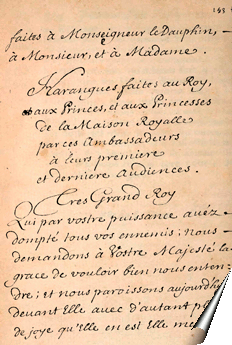 193
faites à Monseigneur le Dauphin,
à Monsieur, et à Madame.
Harangues faites au Roy,
aux Princes, et aux Princesses
de la Maison Royalle
par ces Ambassadeurs
à leurs premiere
et derniere Audiences.
Tres Grand Roy
Qui par vostre puissance avéz
dompté tous vos ennemis; nous
demandons à Vostre Majesté la
grace de vouloir bien nous enten
dre; et nous paroissons aujourd'h
devant Elle avec d'autant p
de joye qu'Elle en est Elle me